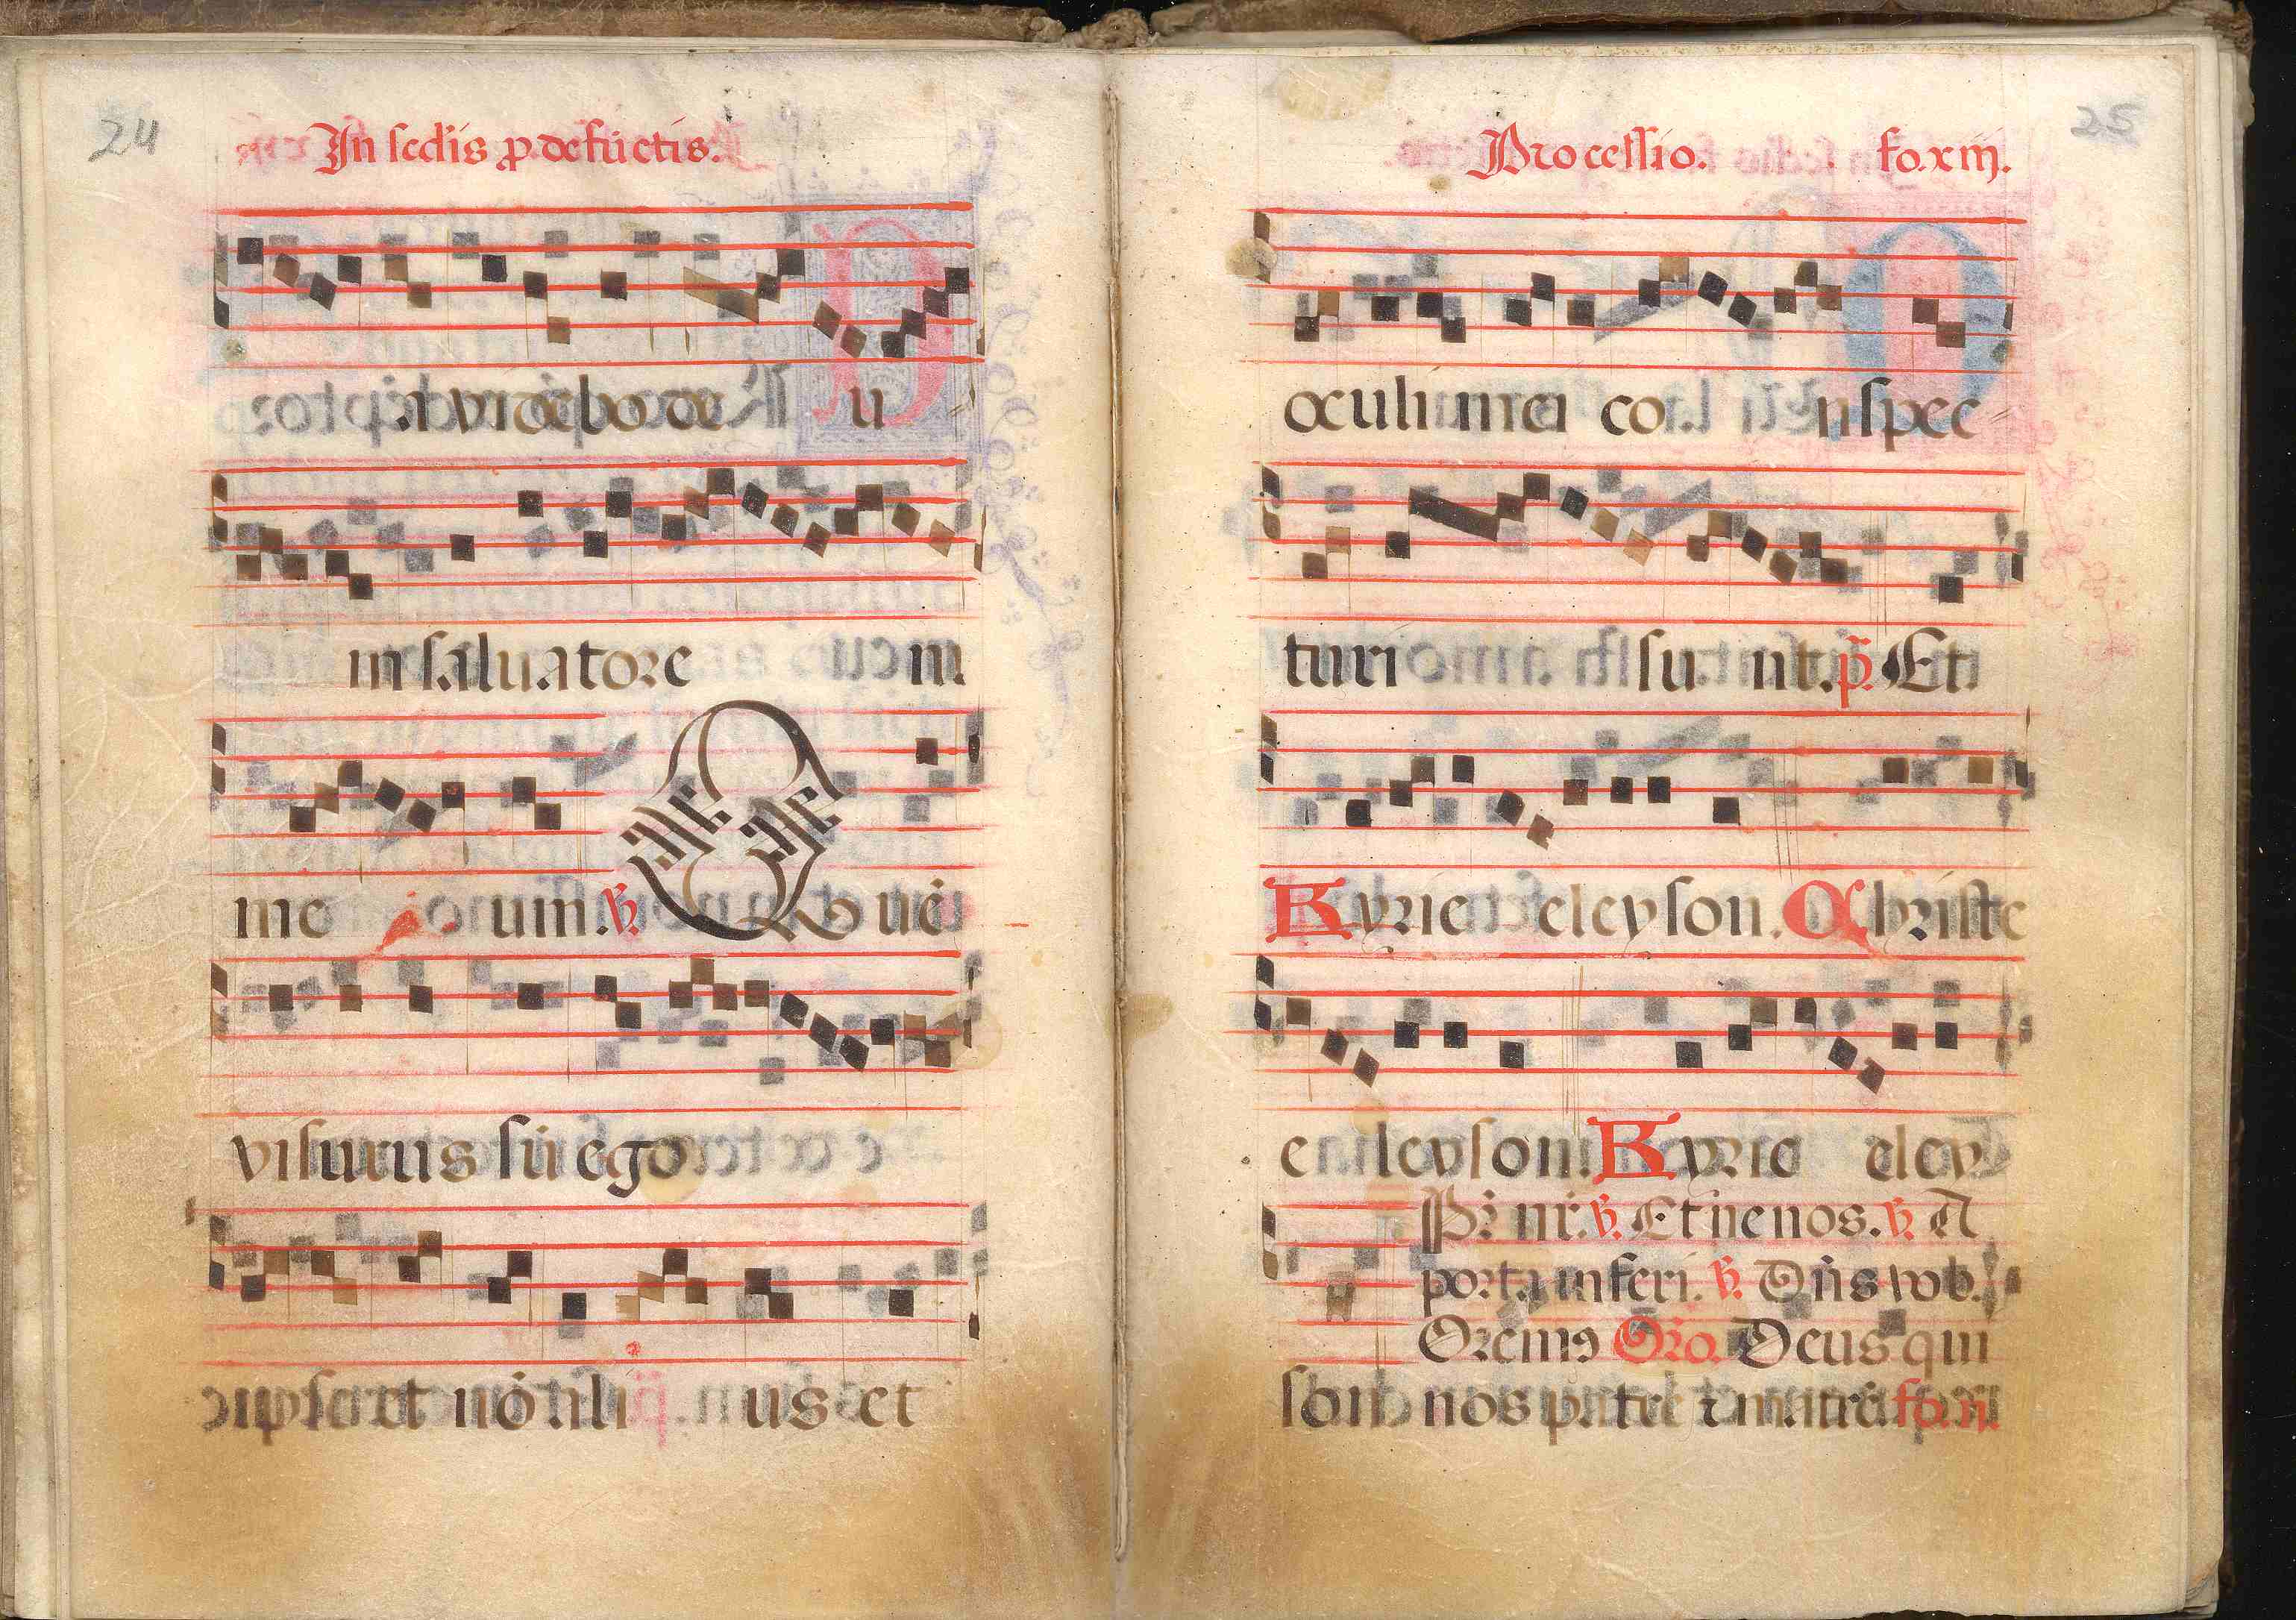 24
In sedis ꝓ defūctis.
i videbo de u
in saluatore m
me um. ℣. Quē
visurus sū ego
ipse et nō ali us et
25
Processio. fo. xiij.
oculi mei co nspec
turi su nt. p̄. Et
Kyrie eleyson. Christe
e leyson. Kyrie eley
Pr̄ nr̄. ℣. Et ne nos. ℣. A
porta inferi. ℣. Dn̄s vob.
Oremꝰ Oro. Deus qui
son nos patrē ⁊ matrē fo.